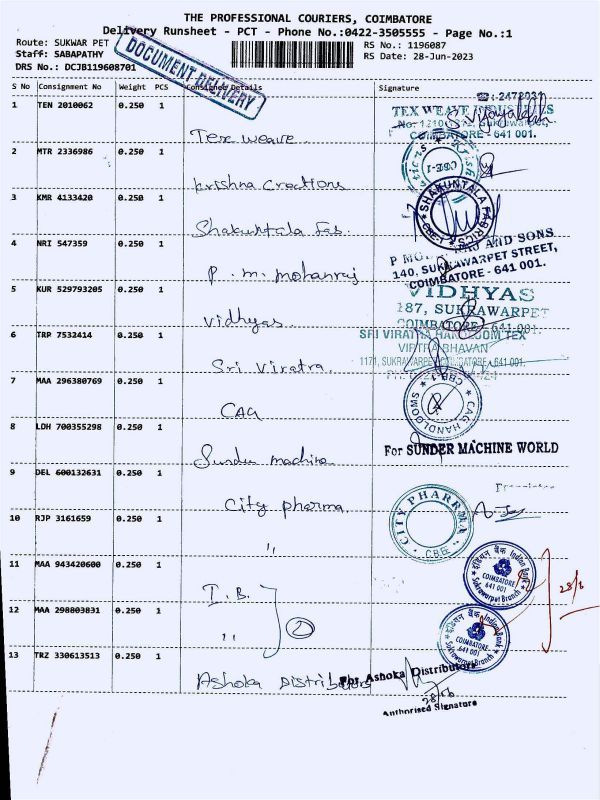 THE PROFESSIONAL COURIERS, COIMBATORE
Delivery Runsheet - PCT - Phone No.:0422-3505555 - Page No.:1
Route: SUKWAR PET
RS No.: 1196087
Staff: SABAPATHY
RS Date: 28-Jun-2023
DRS No.: DCJB119608701
DOCUMENT DELIVERY
S No Consignment No Weight PCS Consignee Details Signature
1 TEN 2010062 0.250 1
Tex weave
TEX WEAVE INDUSTRIES
COIMBATORE - 641 001.
2 MTR 2336986 0.250 1
Krishna Creations
CBE-1
3 KMR 4133420 0.250 1
Shakuntala Fab
SHAKUNTALA FABRICS
CBE-1
4 NRI 547359 0.250 1
P. m. mohanraj
AND SONS
140, SUKRAWARPET STREET,
COIMBATORE - 641 001.
5 KUR 529793205 0.250 1
Vidhyas
VIDHYAS
187, SUKRAWARPET
COIMBATORE - 641 001.
6 TRP 7532414 0.250 1
Sri Viratra
SRI VIRATRA HANDLOOM TEX
1171, SUKRAWARPET COIMBATORE 641 001.
7 MAA 296380769 0.250 1
CAG
CAG HANDLOOMS
CBE-1
8 LDH 700355298 0.250 1
Sunder machine
For SUNDER MACHINE WORLD
9 DEL 600132631 0.250 1
City pharma
CITY PHARMA
CBE
10 RJP 3161659 0.250 1
,,
11 MAA 943420600 0.250 1
I.B.
इंडियन बैंक Indian Bank
COIMBATORE
641 001
Sukrawarpet Branch
28/6
12 MAA 298803831 0.250 1
,,
2
इंडियन बैंक Indian Bank
COIMBATORE
641 001
Sukrawarpet Branch
13 TRZ 330613513 0.250 1
Ashoka Distributors
For Ashoka Distributors
28/6
Authorised Signature